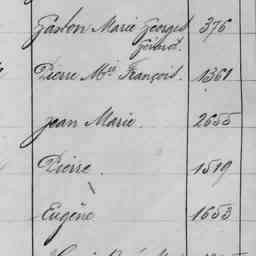 Gaston Marie Georges 376
Gérard.
Pierre Mie François. 1361
Jean Marie. 2655
Pierre. 1519
Eugène 1653